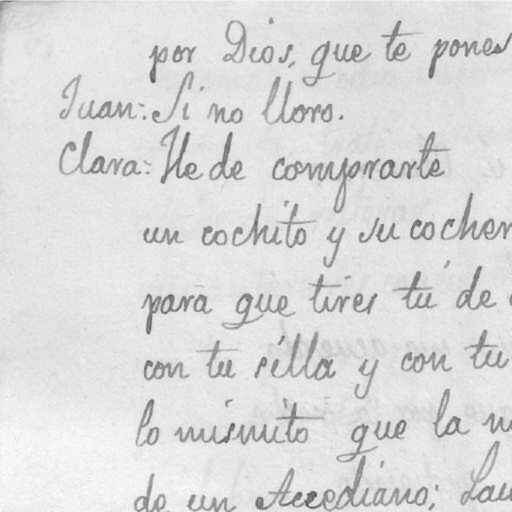 por Dios, que te pones
Juan: Si no lloro.
Clara: He de comprarte
un cochito y su cocher
para que tires tú de
con tu silla y con tu
lo mismito que la
de un Arcediano;